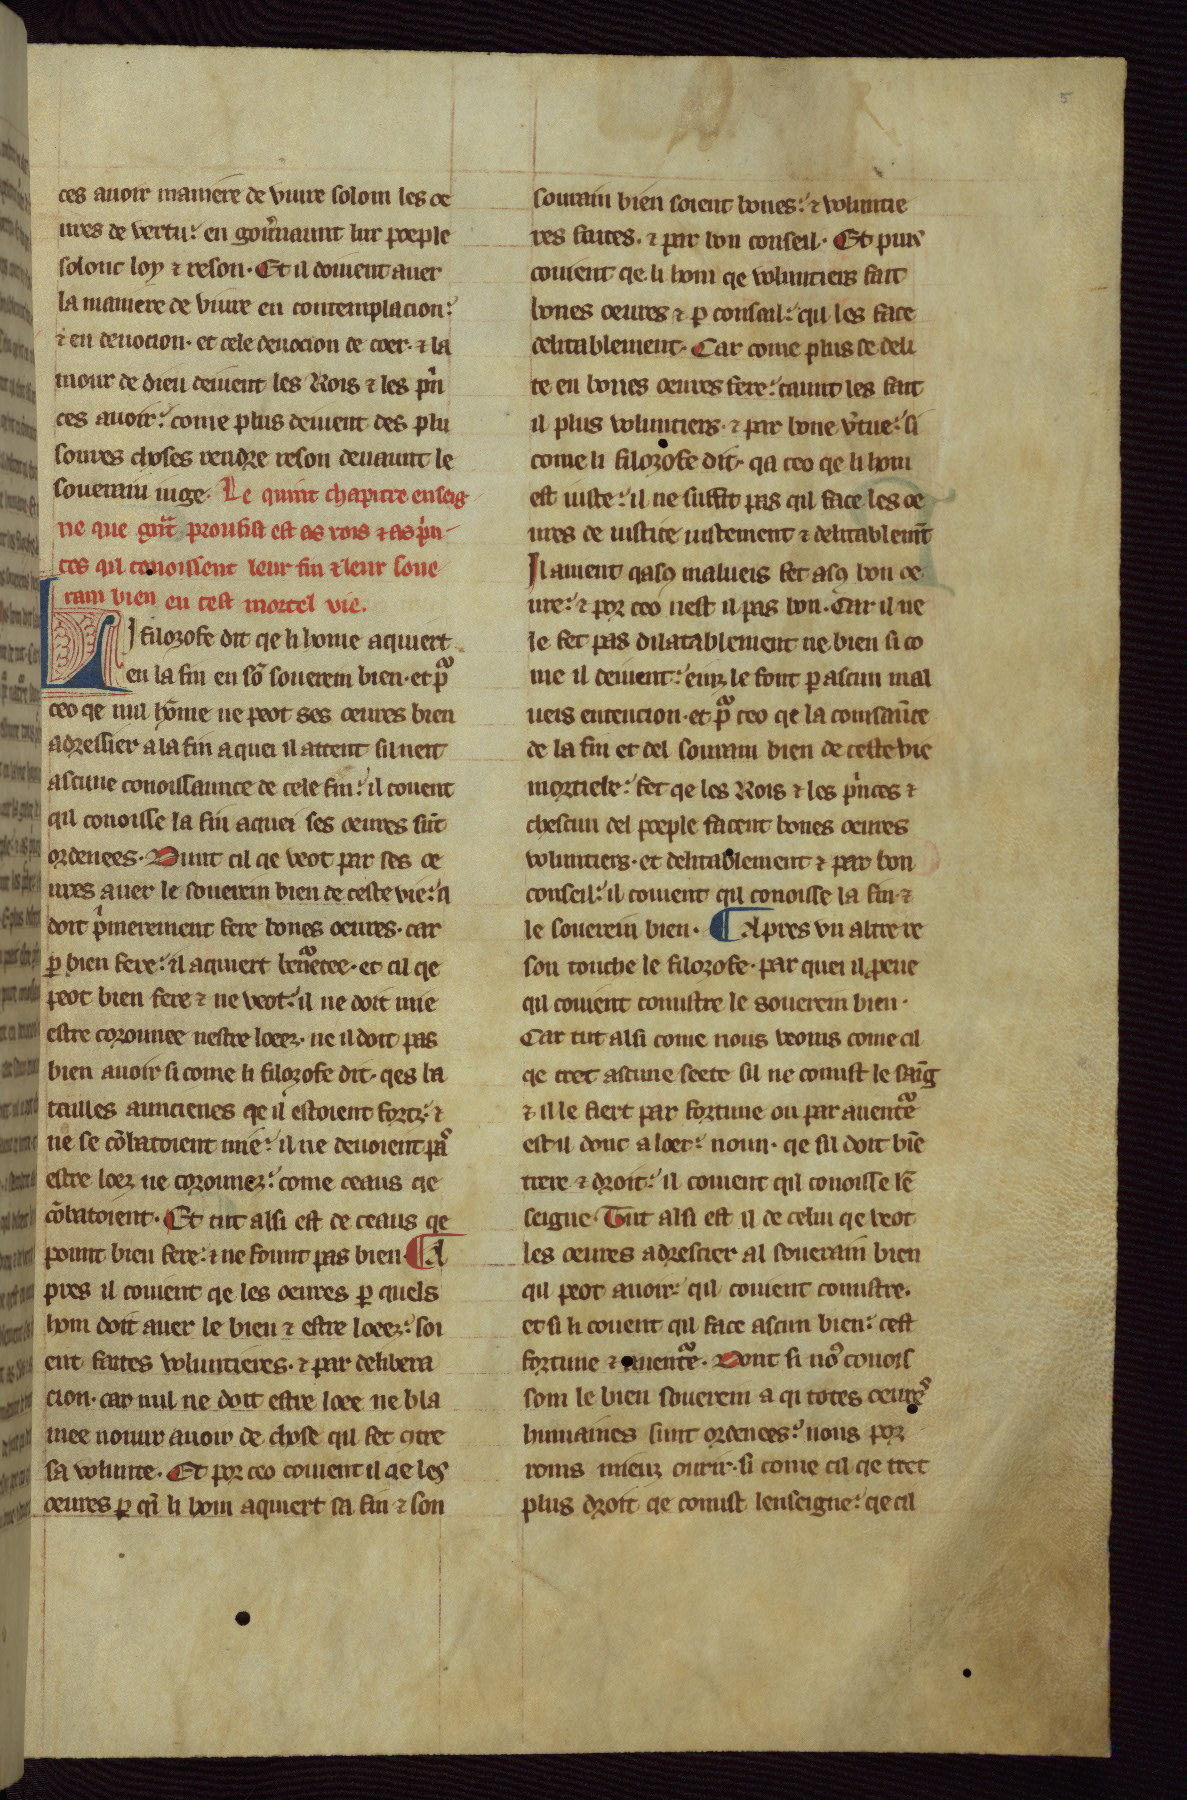 5
ces auoir maniere de viure solom les oe
ures de vertu: en gou̾naunt lur poeple
solonc loy ⁊ reson. Et il douient auer
la maniere de viure en contemplacion:
⁊ en deuocion. et cele deuocion de coer. ⁊ la
mour de dieu deiuent les Rois ⁊ les pⁱn
ces auoir: come plus deiuent des plu
soures choses rendre reson deuaunt le
souerain iuge. Le quint chapitre enseig
ne que gⁿt proufist est as rois ⁊ as pⁱn
ces qil conoissent leur fin ⁊ leur soue
rain bien en cest mortel vie.
LI filozofe dit qe li home aquiert
en la fin en sō souerein bien. et pᵃ
ceo qe nul hōme ne peot ses oeures bien
adressier a la fin a quei il attent sil neit
ascune conoissaunce de cele fin: il couent
qil conoisse la fin a quei ses oeures sūt
ordenees. Dunt cil qe veot par ses oe
ures auer le souerein bien de ceste vie: il
doit pⁱmerement fere bones oeures. car
ꝑ bien fere: il aquiert beneᵃetee. et cil qe
peot bien fere ⁊ ne veot: il ne doit mie
estre corounee nestre loeez. ne il doit pas
bien auoir si come li filozofe dit. qes ba
tailles auncienes qe il estoient fortz: ⁊
ne se cōbatoient mie: il ne deuoient pas
estre loez ne corounez: come ceaus qe
cōbatoient. Et tut alsi est de ceaus qe
pount bien fere: ⁊ ne fount pas bien. ¶ A
pres il couient qe les oeures ꝑ quels
hom doit auer le bien ⁊ estre loeez: soi
ent faites voluntieres. ⁊ par delibera
cion. car nul ne doit estre loee ne bla
mee nonur auoir de chose qil fet cⁿtre
sa volunte. Et por ceo couient il qe les
oeures ꝑ qⁱ li hom aquiert sa fin ⁊ son
souurain bien soient bones: ⁊ voluntie
res faites. ⁊ par bon conseil. Et puis
couient qe li hom qe voluntiers fait
bones oeures ⁊ ꝑ consail: qil les face
delitablement. Car come plus se deli
te en bones oeures fere: taunt les fait
il plus voluntiers. ⁊ par bone v̾tue: si
come li filozofe dit. qa ceo qe li hom
est iuste: il ne suffit pas qil face les oe
ures de iustice iustement ⁊ delitablemēt
Il auient qascū malueis fet ascū bon oe
ure: ⁊ por ceo nest il pas bon. Car il ne
le fet pas dilatablement ne bien si co
me il deuient: einz le font ꝑ ascun mal
ueis entencion. et pᵃ ceo qe la conisāūce
de la fin et del souurain bien de ceste vie
mortiele: fet qe les Rois ⁊ les pⁱnces ⁊
chescun del poeple facent bones oeures
voluntiers. et delitablement ⁊ par bon
conseil: il couient qil conoisse la fin ⁊
le souerein bien. ¶ Apres vn altre re
son touche le filozofe. par quei il proue
qil couient conustre le souerein bien.
Car tut alsi come nous veoms come cil
qe tret ascune seete sil ne conust le saīg
⁊ il le fiert par fortune ou par auentᵃe
est il donc a loer: noun. qe sil doit biē
trere ⁊ droit: il couient qil conoisse lē
seigne. Tut alsi est il de celui qe veot
les oeures adrescier al souerain bien
qil peot auoir: qil couient conustre.
et si li couent qil face ascun bien: cest
fortune ⁊ auentᵃe. Dont si noᵘ conois
som le bien souerein a qi totes oeures
humaines sunt ordenees: nous por
roms mieuz ourir. si come cil qe tret
plus droit qe conust lenseigne: qe cil